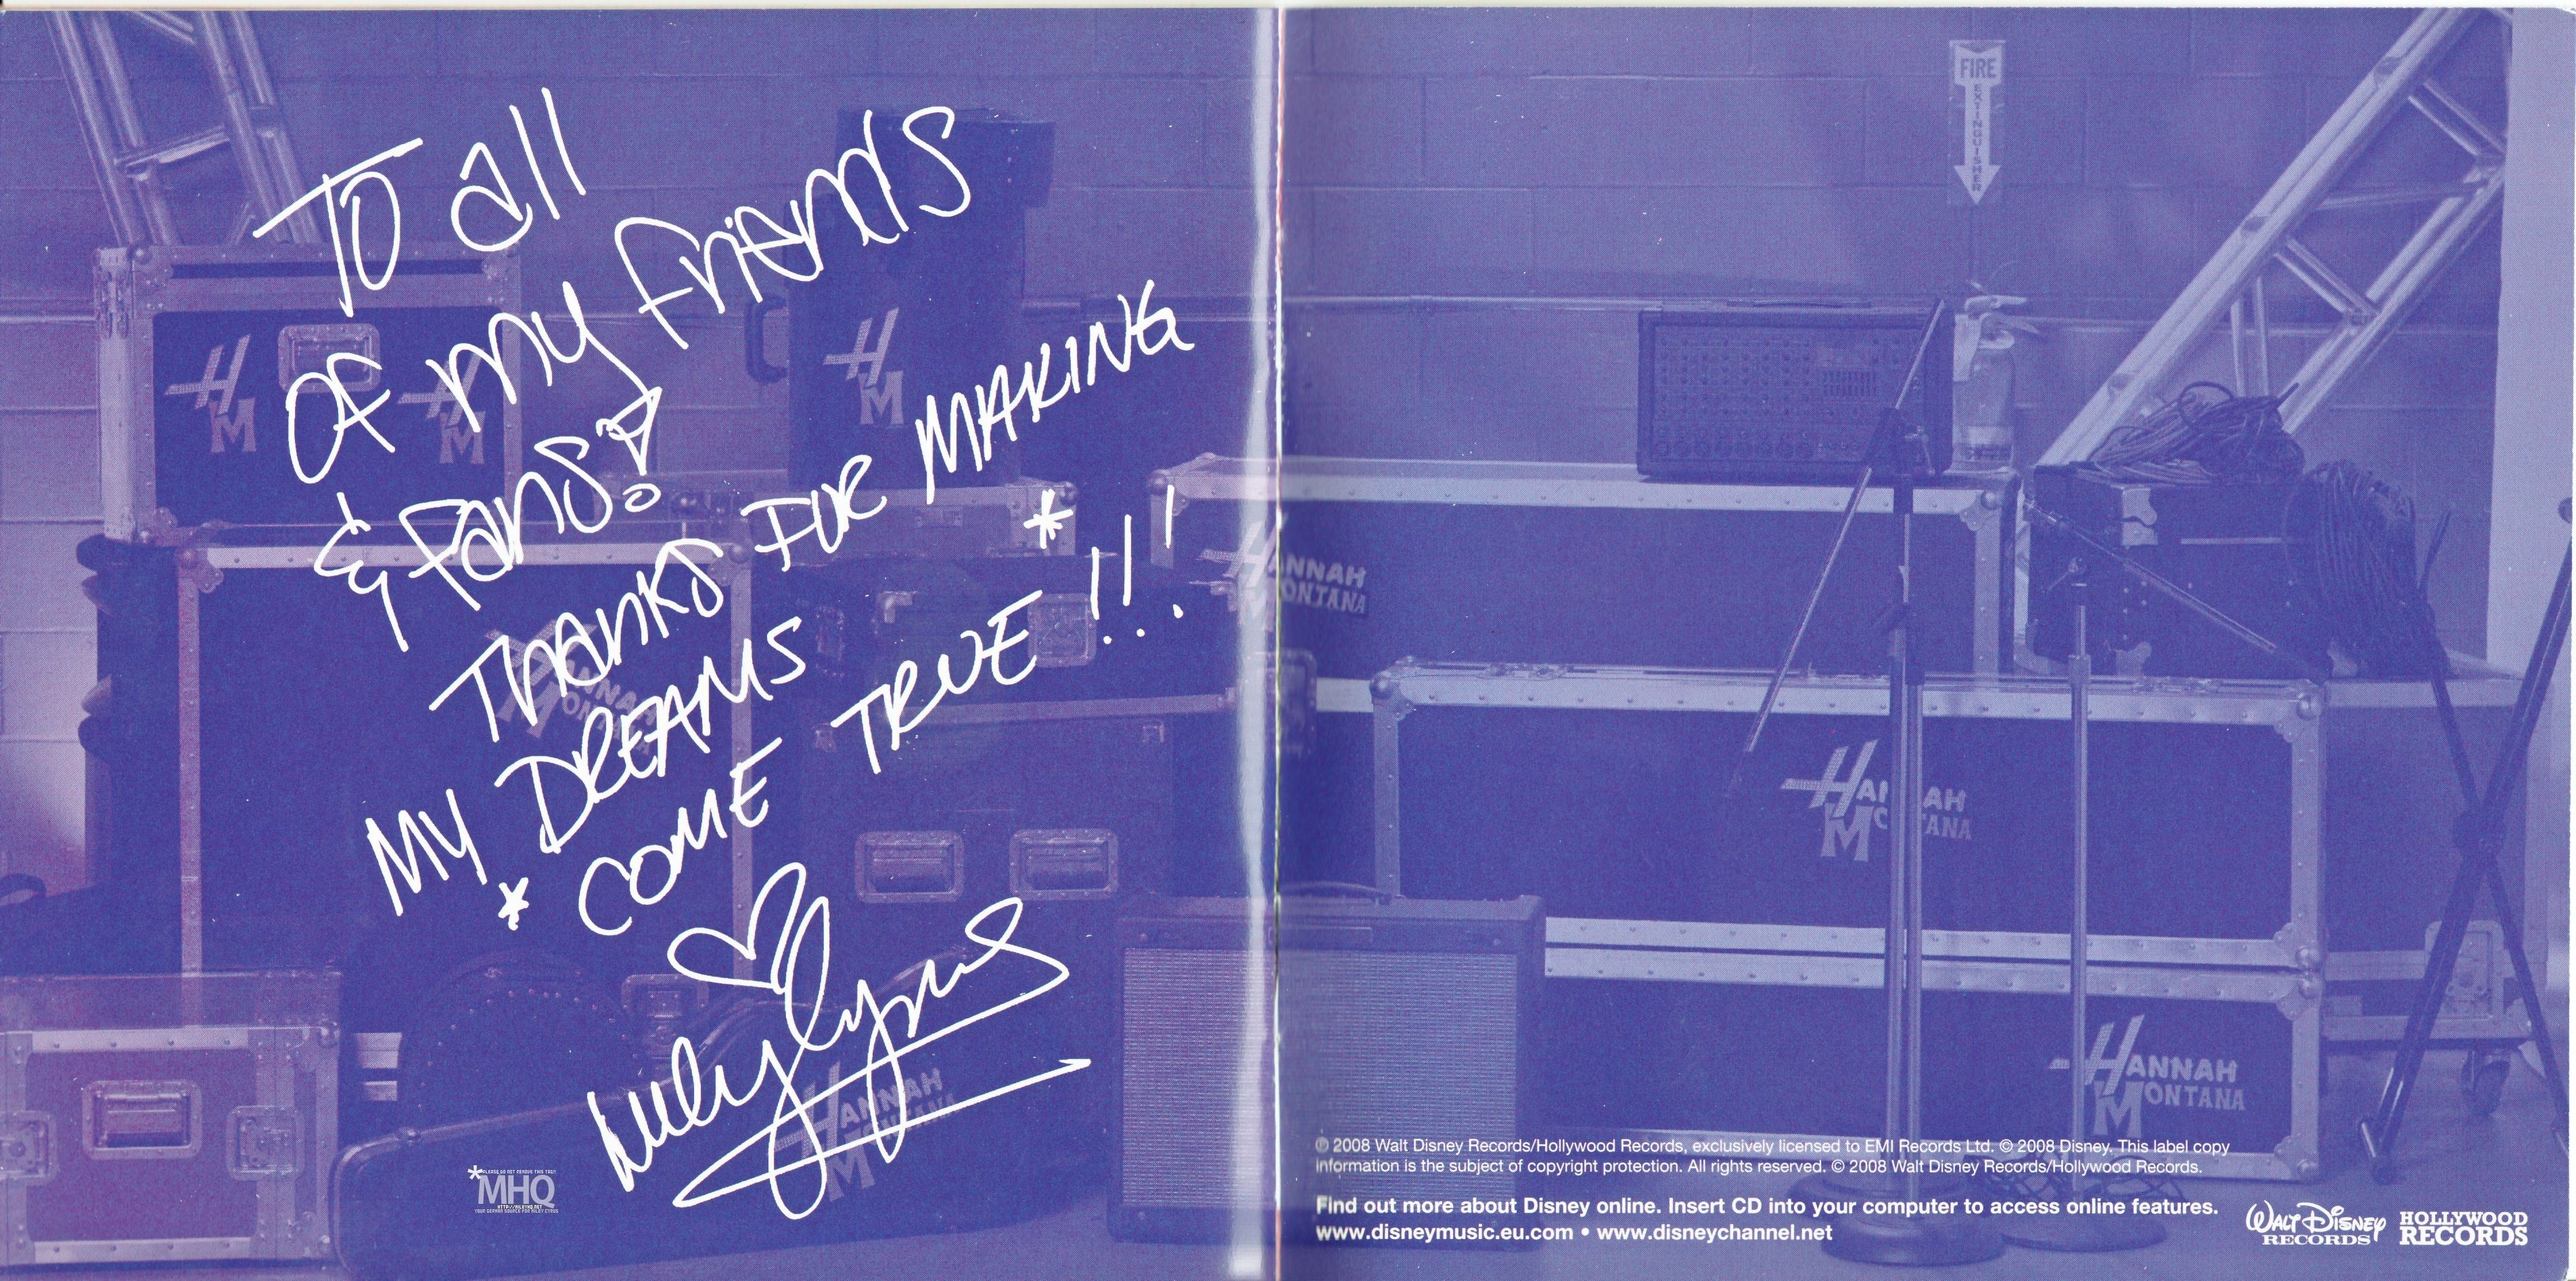 To all
of my friends
& Fans!
Thanks FOR MAKING
MY DREAMS
* COME TRUE!!! *
Miley Cyrus
HM
HM
HM
HANNAH MONTANA
HANNAH MONTANA
*PLEASE DO NOT REMOVE THIS TAG!!
MHQ
HTTP://MILEYHQ.NET
YOUR GERMAN SOURCE FOR MILEY CYRUS
FIRE
EXTINGUISHER
HANNAH
MONTANA
HANNAH
MONTANA
HANNAH
MONTANA
℗ 2008 Walt Disney Records/Hollywood Records, exclusively licensed to EMI Records Ltd. © 2008 Disney. This label copy
information is the subject of copyright protection. All rights reserved. © 2008 Walt Disney Records/Hollywood Records.
Find out more about Disney online. Insert CD into your computer to access online features.
www.disneymusic.eu.com • www.disneychannel.net
WALT DISNEY
RECORDS
HOLLYWOOD
RECORDS